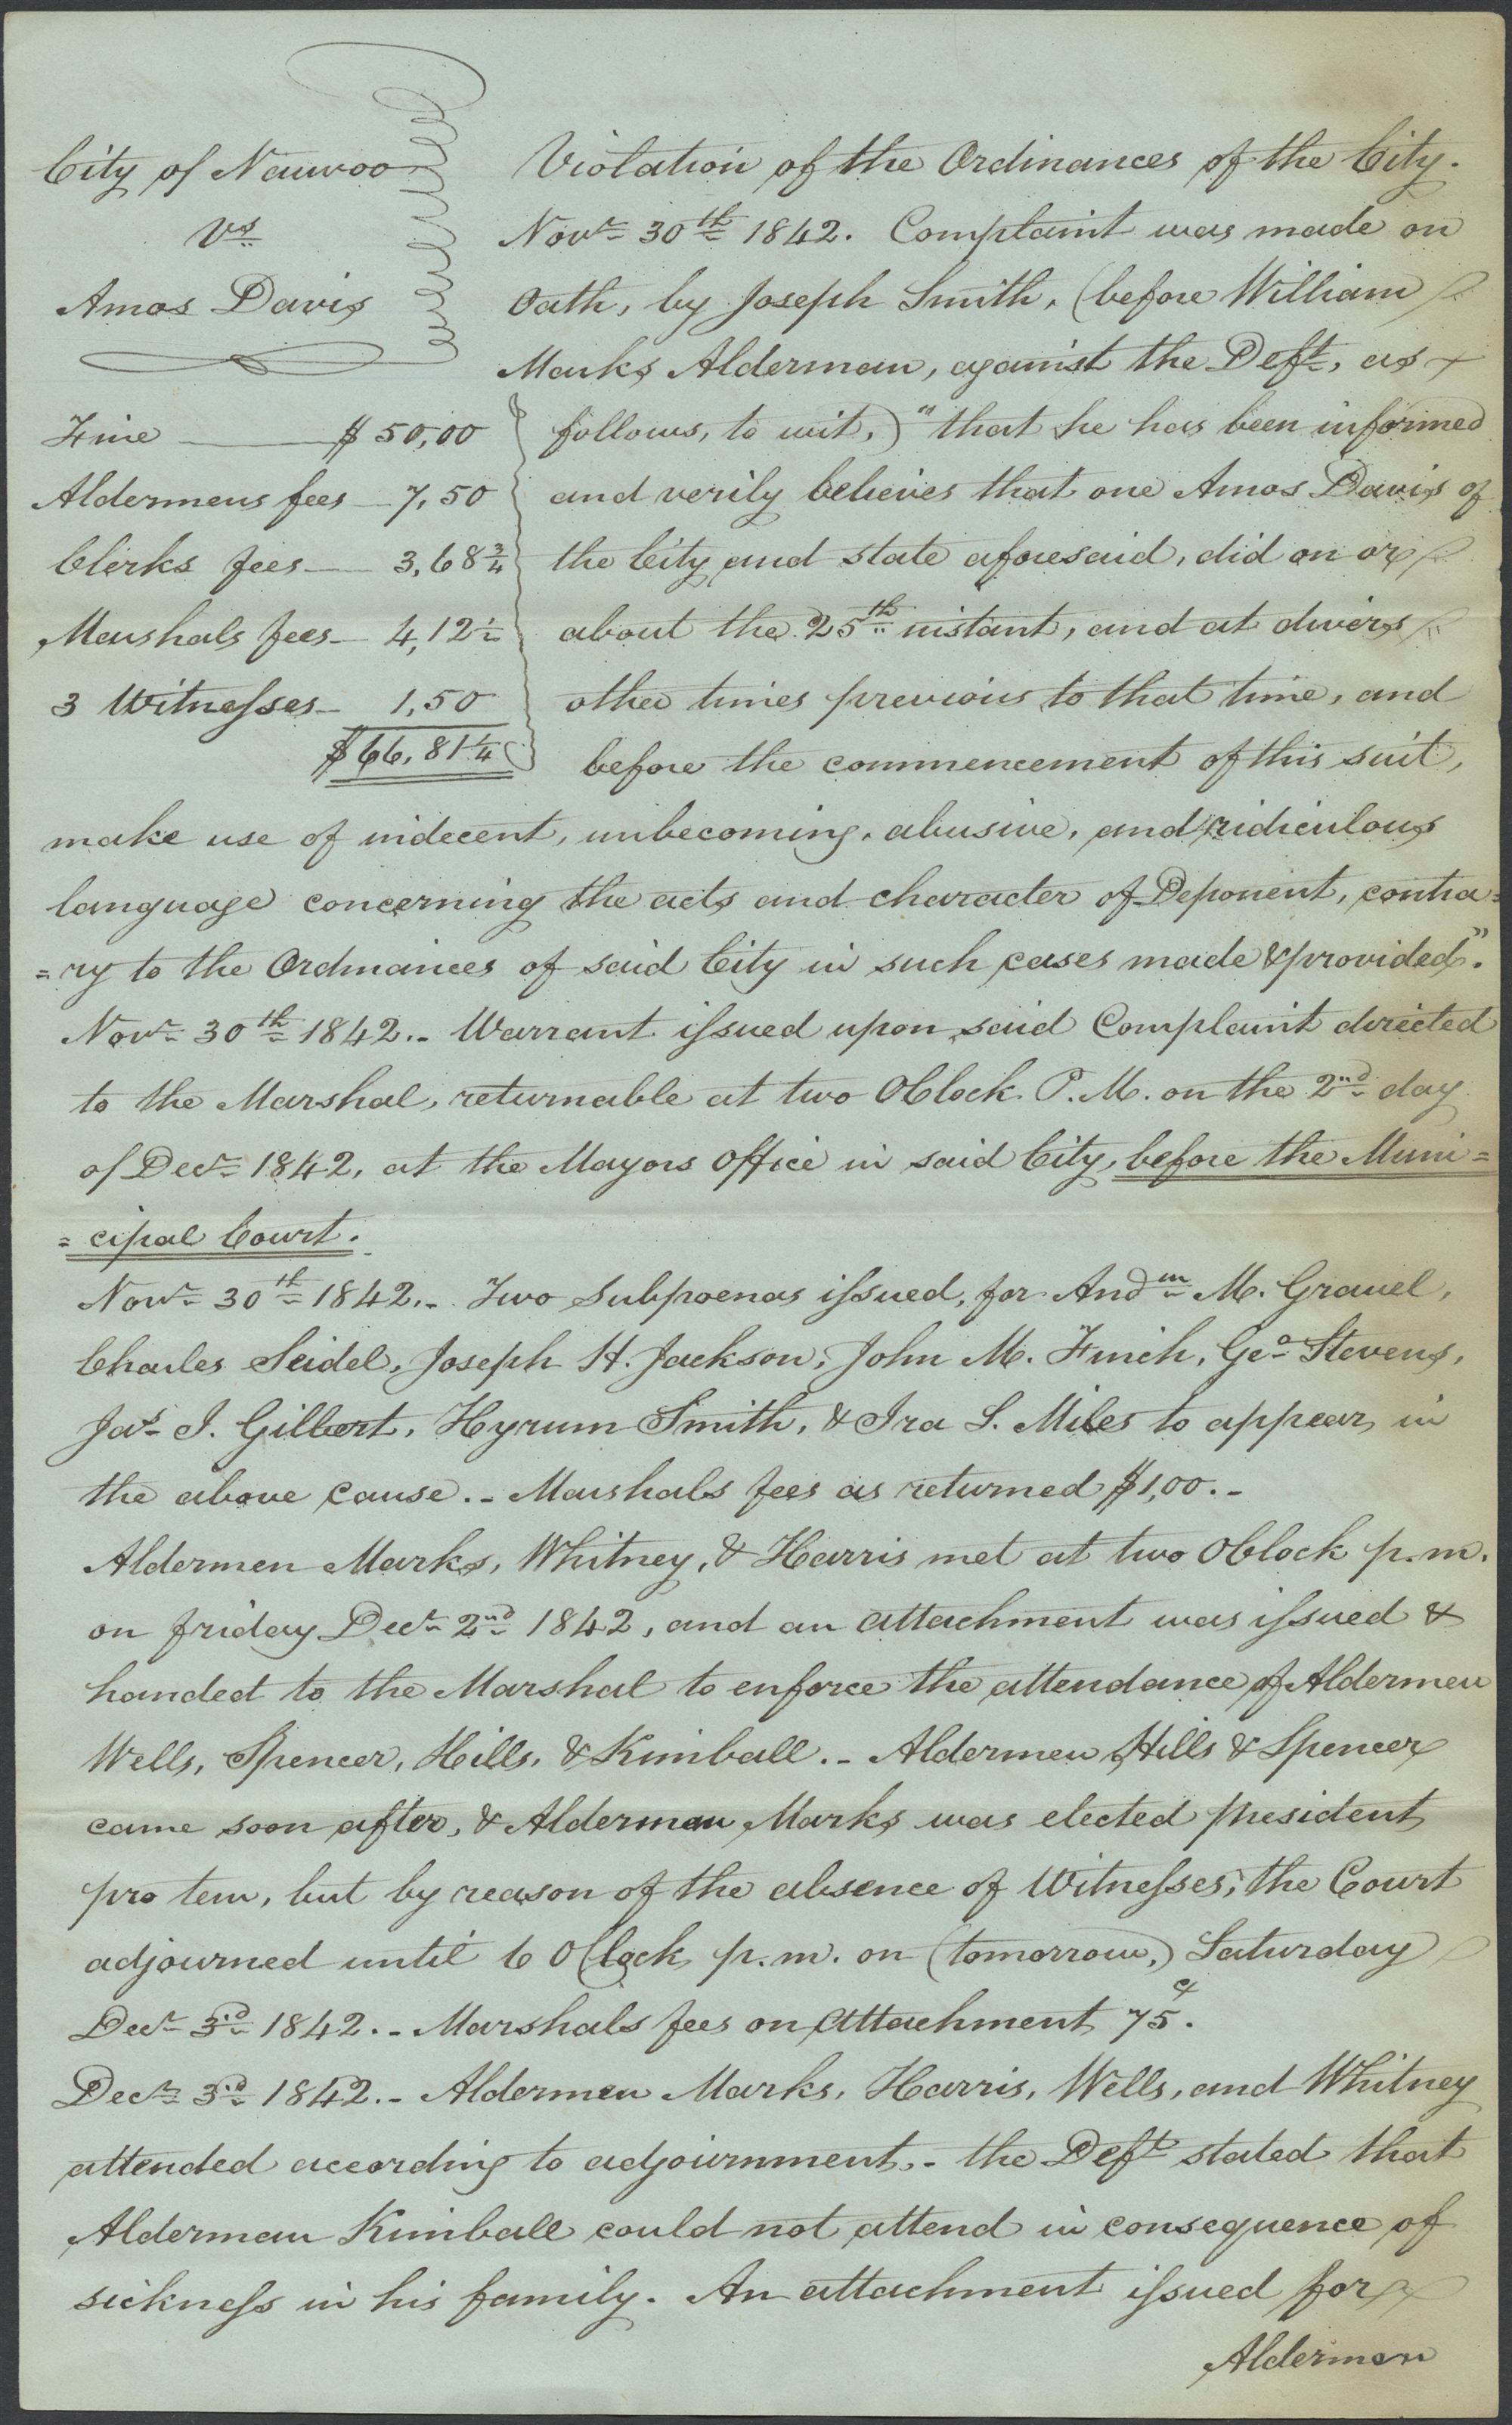 City of Nauvoo
vs
Amos Davis
Fine $50,00
Aldermens fees 7,50
Clerks fees 3,68¾
Marshals fees 4,12½
3 Witnesses 1,50
$66,81¼
Violation of the Ordinances of the City.
Novr 30th 1842. Complaint was made on
Oath, by Joseph Smith, (before William
Marks Alderman, against the Deft, as
follows, to wit,) "that he has been informed
and verily believes that one Amos Davis of
the City and state aforesaid, did on or
about the 25th instant, and at divers
other times previous to that time, and
before the commencement of this suit,
make use of indecent, unbecoming, abusive, and ridiculous
language concerning the acts and character of Deponent, contra=
=ry to the Ordinances of said City in such cases made & provided".
Novr 30th 1842.- Warrant issued upon said Complaint directed
to the Marshal, returnable at two OClock P.M. on the 2nd day
of Decr 1842, at the Mayors Office in said City, before the Muni=
=cipal Court.
Novr 30th 1842.- Two Subpoenas issued, for Andw M. Gravel,
Charles Seidel, Joseph H. Jackson, John M. Finch, Geo Stevens,
Jas I. Gilbert, Hyrum Smith, & Ira S. Miles to appear in
the above cause.- Marshals fees as returned $1,00.-
Aldermen Marks, Whitney, & Harris met at two OClock p.m.
on friday Decr 2nd 1842, and an attachment was issued &
handed to the Marshal to enforce the attendance of Aldermen
Wells, Spencer, Hills, & Kimball.- Aldermen Hills & Spencer
came soon after, & Alderman Marks was elected president
pro tem, but by reason of the absence of Witnesses, the Court
adjourned until 6 OClock p.m. on (tomorrow,) Saturday
Decr 3d 1842.- Marshals fees on attachment 75 c.
Decr 3d 1842.- Aldermen Marks, Harris, Wells, and Whitney
attended according to adjournment.- the Deft stated that
Alderman Kimball could not attend in consequence of
sickness in his family. An attachment issued for
Alderman